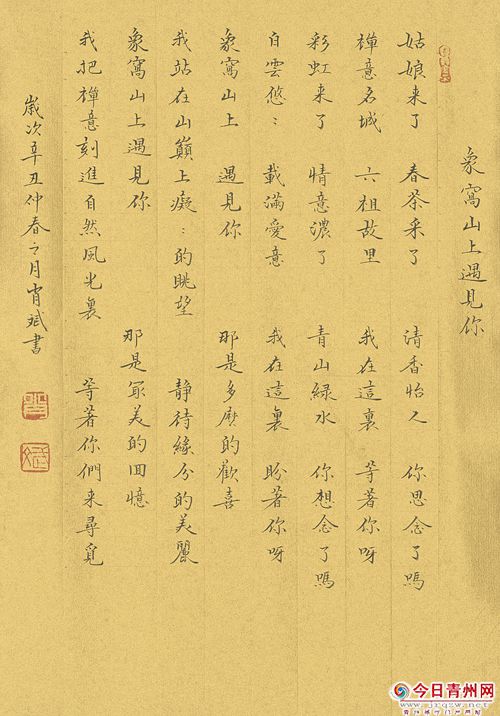 象窩山上遇見你
姑娘来了 春茶采了 清香怡人 你思念了嗎
禪意名城 六祖故里 我在這裏 等著你呀
彩虹来了 情意濃了 青山緑水 你想念了嗎
白雲悠: 載滿愛意 我在這裏 盼著你呀
象窩山上 遇見你 那是多麽的歡喜
我站在山巔上癡:的眺望 静待緣分的美麗
象窩山上遇見你 那是最美的回憶
我把禪意刻進自然風光裏 等著你們来尋覓
歲次辛丑仲春之月肖斌書
今日青州网
www.jrqzw.net